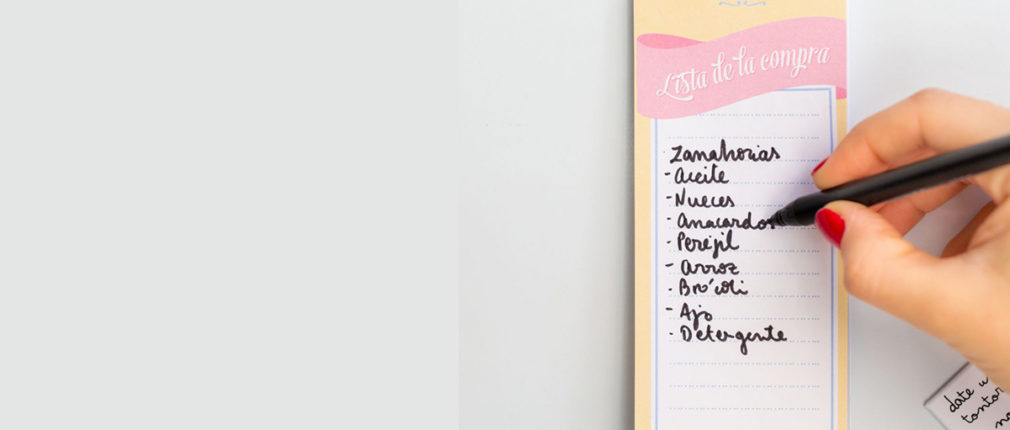 Lista de la compra
Zanahorias
- Aceite
- Nueces
- Anacardos
- Perejil
- Arroz
- Brócoli
- Ajo
- Detergente
date u
tonto